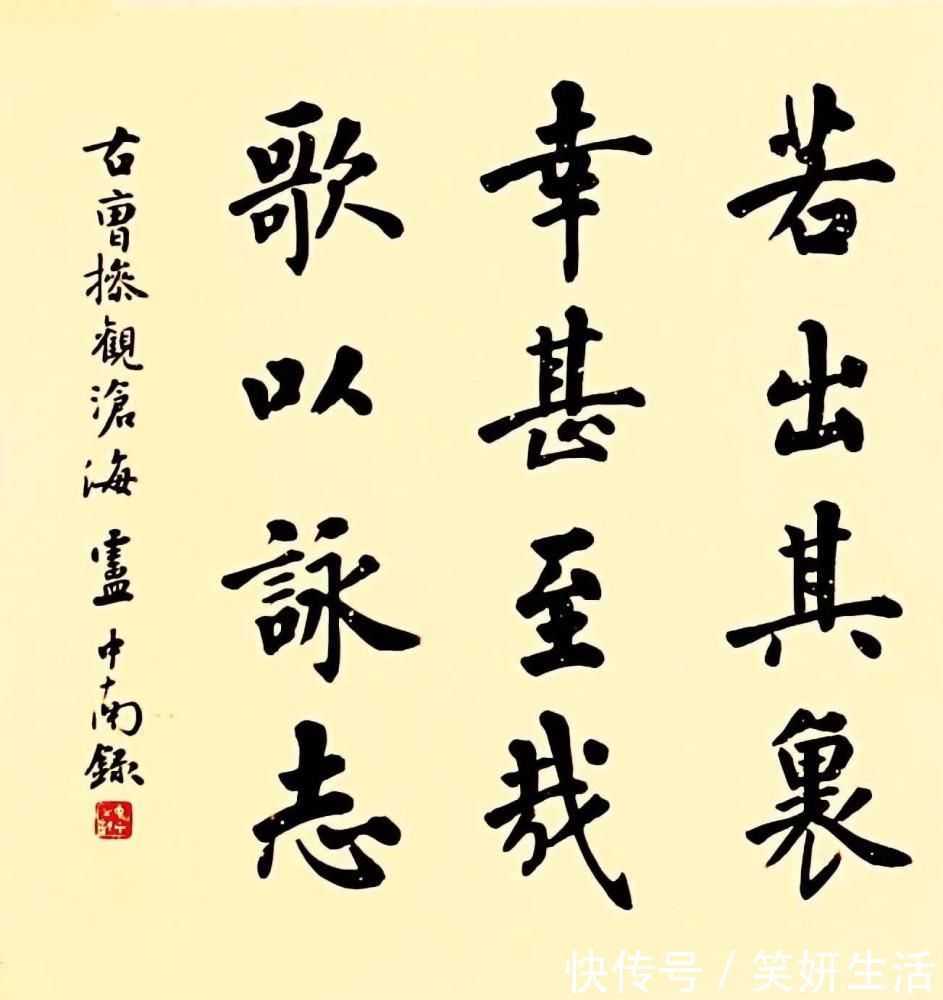 若出其裏
幸甚至哉
歌以詠志
古曹操觀滄海 盧中南錄
快传号/笑妍生活